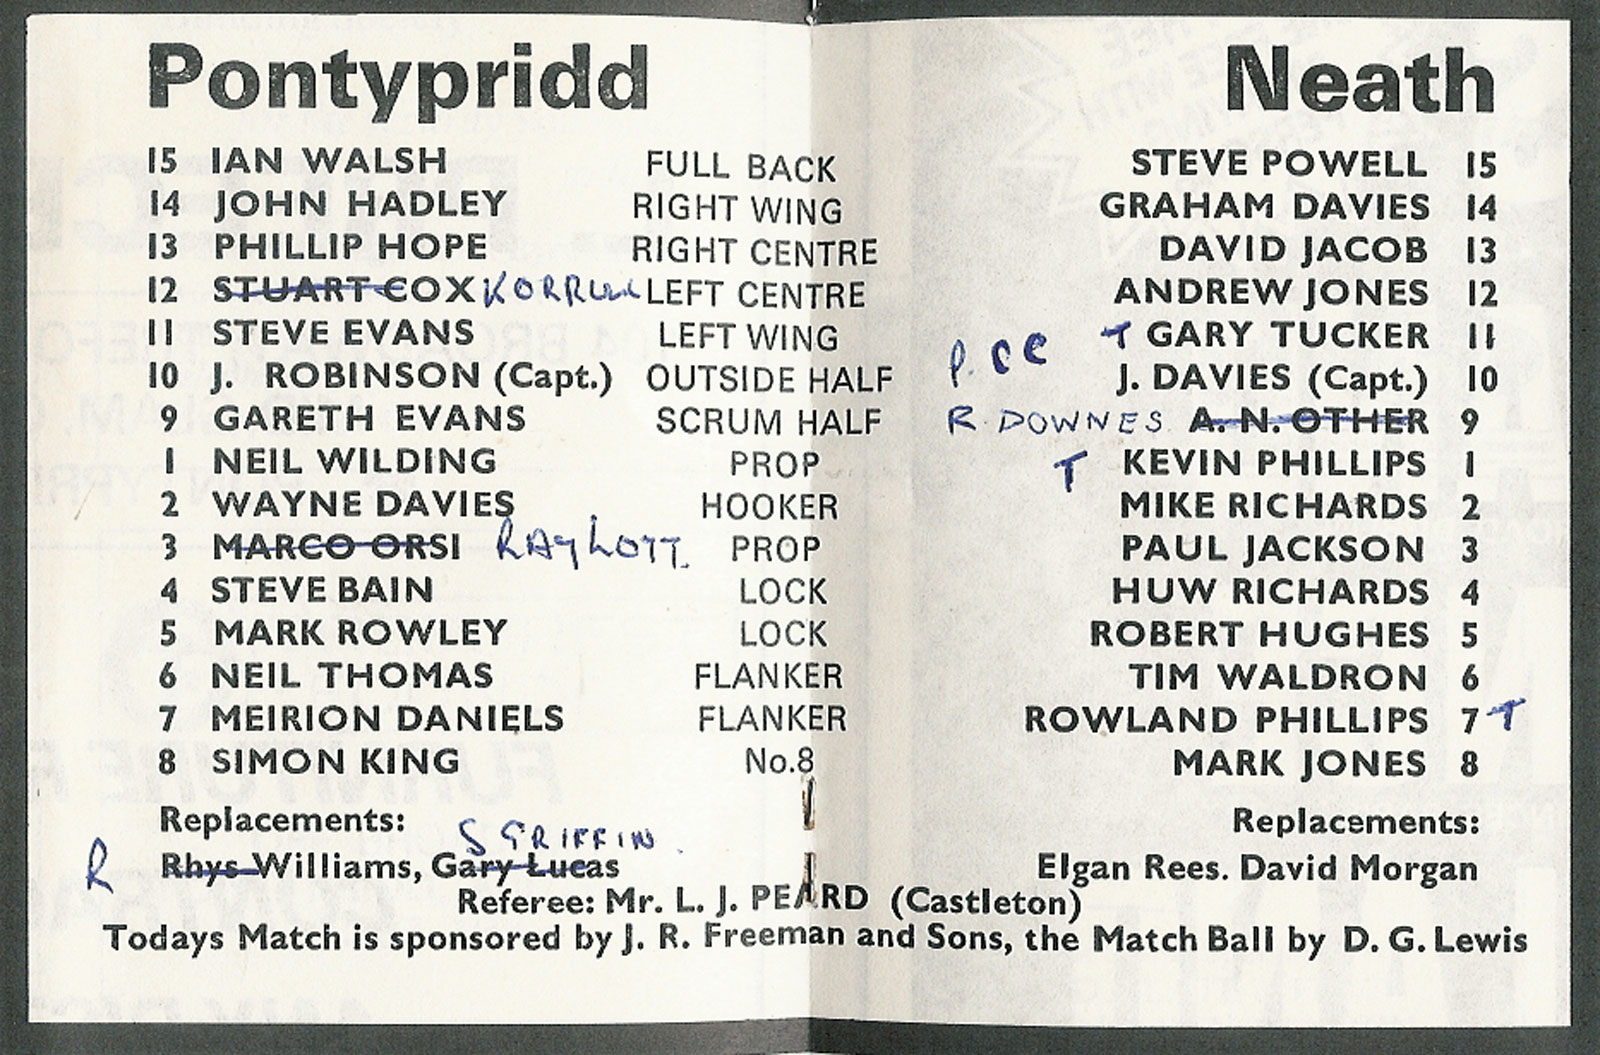 Pontypridd Neath
15 IAN WALSH FULL BACK STEVE POWELL 15
14 JOHN HADLEY RIGHT WING GRAHAM DAVIES 14
13 PHILLIP HOPE RIGHT CENTRE DAVID JACOB 13
12 STUART COX LEFT CENTRE ANDREW JONES 12
11 STEVE EVANS LEFT WING T GARY TUCKER 11
10 J. ROBINSON (Capt.) OUTSIDE HALF J. DAVIES (Capt.) 10
9 GARETH EVANS SCRUM HALF R. DOWNES A. N. OTHER 9
1 NEIL WILDING PROP T KEVIN PHILLIPS 1
2 WAYNE DAVIES HOOKER MIKE RICHARDS 2
3 MARCO ORSI RAY LOTT. PROP PAUL JACKSON 3
4 STEVE BAIN LOCK HUW RICHARDS 4
5 MARK ROWLEY LOCK ROBERT HUGHES 5
6 NEIL THOMAS FLANKER TIM WALDRON 6
7 MEIRION DANIELS FLANKER ROWLAND PHILLIPS 7 T
8 SIMON KING No.8 MARK JONES 8
Replacements: Replacements:
S GRIFFIN.
R Rhys Williams, Gary Lucas Elgan Rees. David Morgan
Referee: Mr. L. J. PEARD (Castleton)
Todays Match is sponsored by J. R. Freeman and Sons, the Match Ball by D. G. Lewis